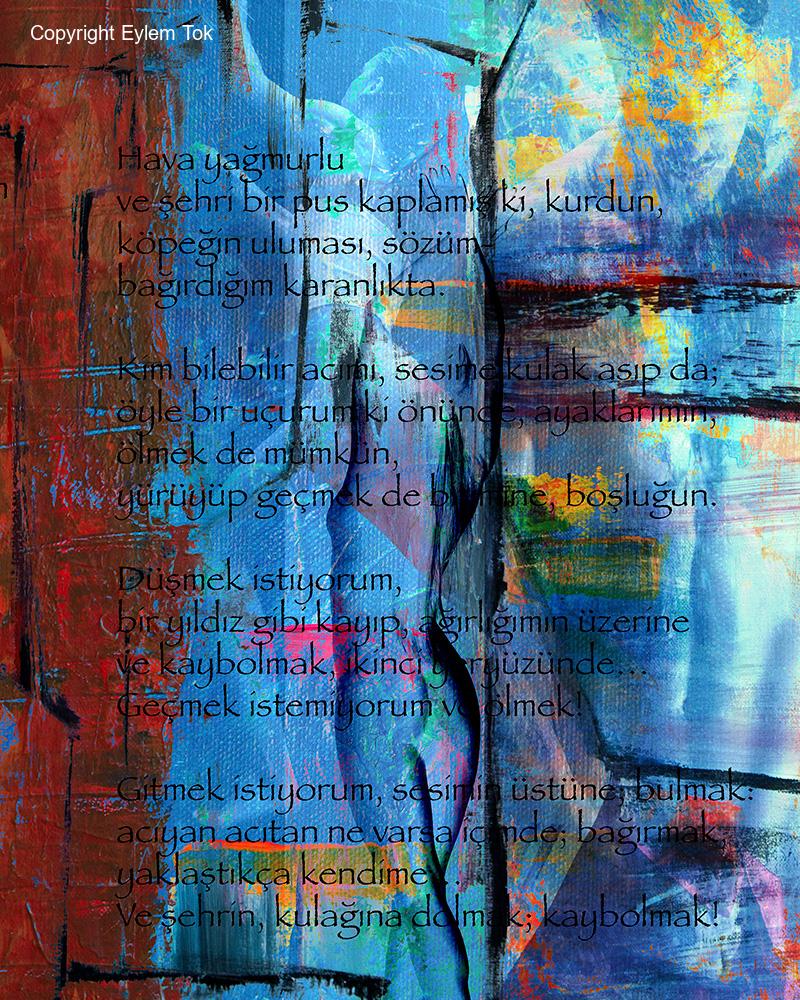 Copyright Eylem Tok
Hava yağmurlu
ve şehri bir pus kaplamış ki, kurdun,
köpeğin uluması, sözüm
bağırdığım karanlıkta.
Kim bilebilir acımı, sesime kulak asıp da;
öyle bir uçurum ki önünde, ayaklarımın,
ölmek de mümkün,
yürüyüp geçmek de bitimine, boşluğun.
Düşmek istiyorum,
bir yıldız gibi kayıp, ağırlığımın üzerine
ve kaybolmak, ikinci yeryüzünde...
Geçmek istemiyorum ve ölmek!
Gitmek istiyorum, sesimin üstüne; bulmak:
acıyan acıtan ne varsa içimde; bağırmak,
yaklaştıkça kendime...
Ve şehrin, kulağına dolmak; kaybolmak!